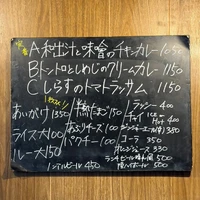 A 和出汁と味噌のチキンカレー 1050
B トントロとしめじのクリームカレー 1150
C しらすのトマトラッサム 1150
あいがけ 1350
ライス大 100
ルー大 150
半熟たまご 150
あぶりチーズ 100
パクチー 100
ノンアルビール 450
ラッシー 400
チャイ ICE Hot 400
ジンジャーエール(辛) 350
コーラ 300
オレンジジュース 330
ランチビール 500